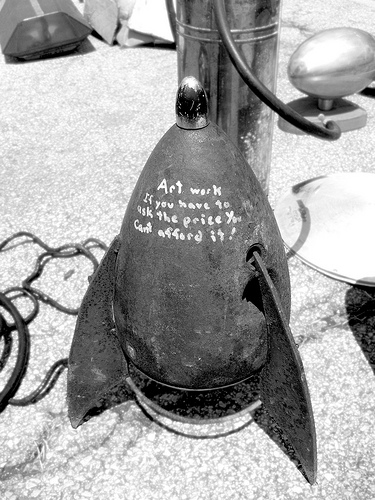 Art work
If you have to
ask the price You
Cant afford it!